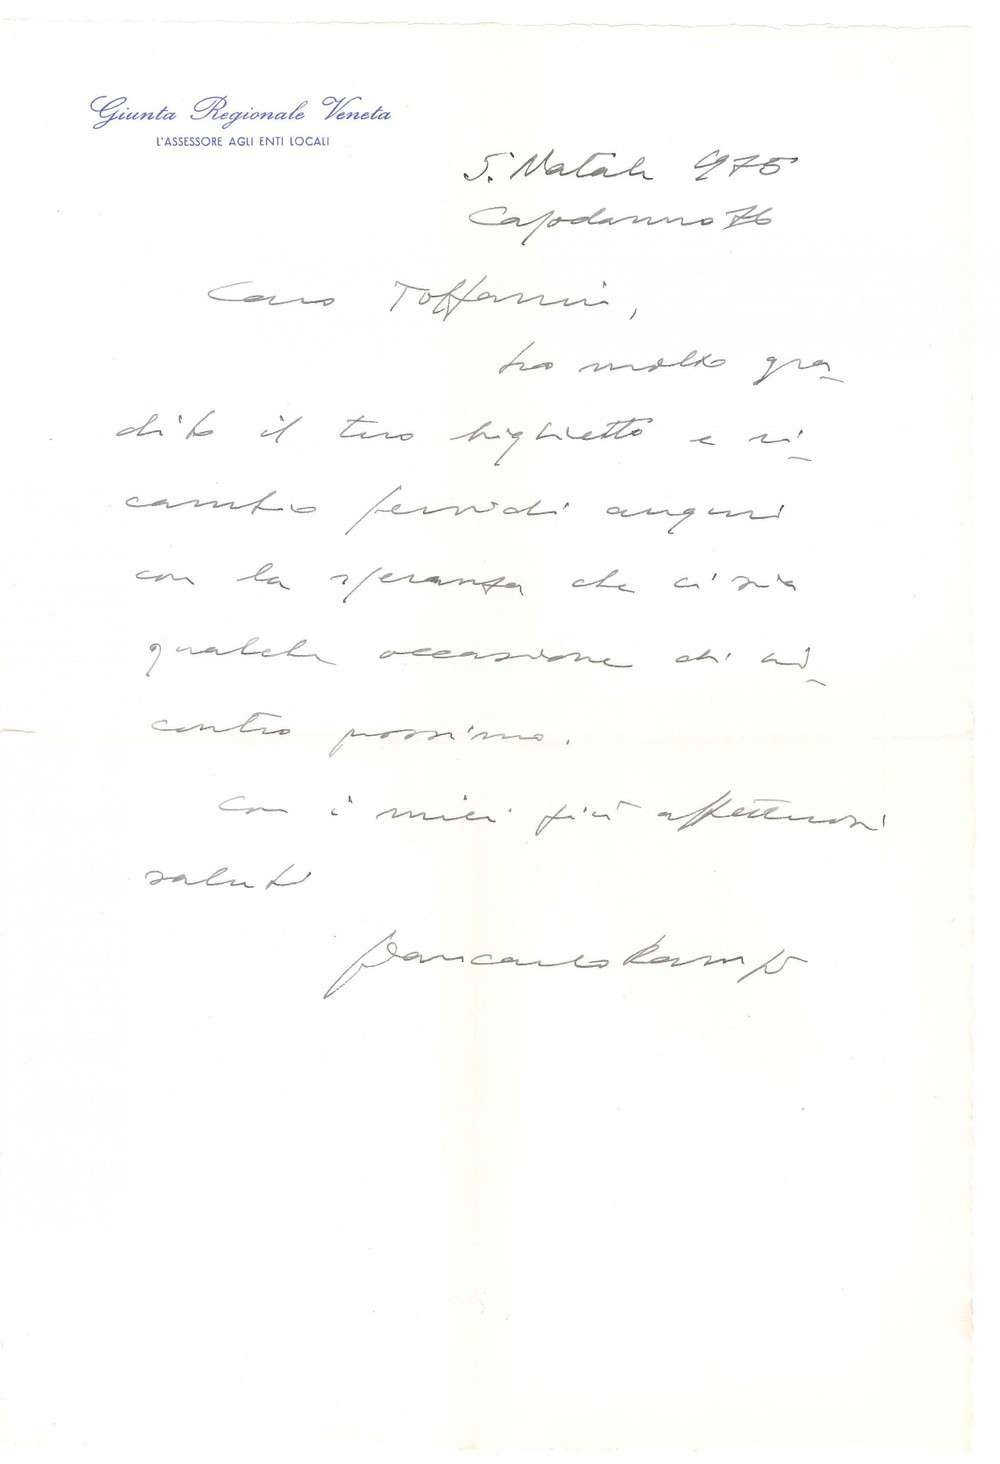 Giunta Regionale Veneta
L'ASSESSORE AGLI ENTI LOCALI
S. Natale 975
Capodanno 76
Caro Toffanin,
ho molto gra_
dito il tuo biglietto e ri_
cambio fervidi auguri
con la speranza che ci sia
qualche occasione di in_
contro prossimo.
Con i miei più affettuosi
saluti
Giancarlo Rampi